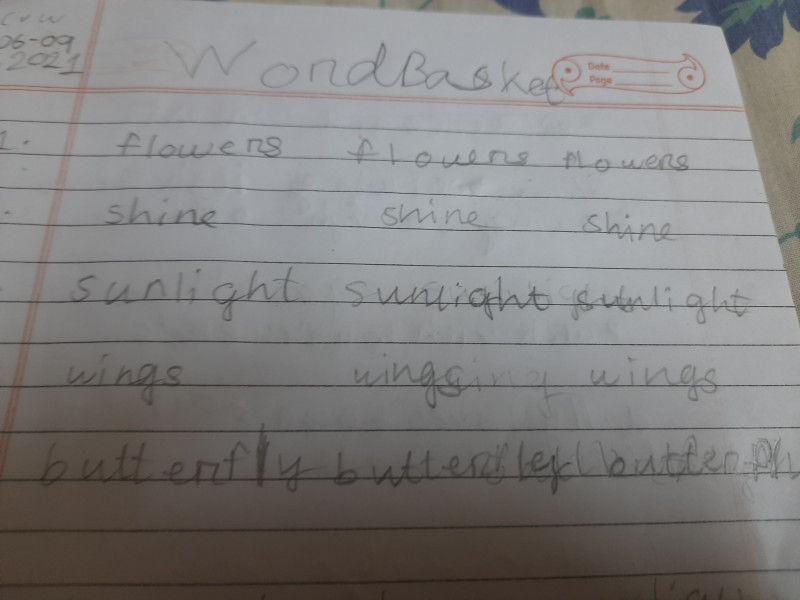 C.W
06-09
-2021
Word Basket
Date
Page
1. flowers flowers flowers
shine shine shine
sunlight sunlight sunlight
wings wings wings
butterfly